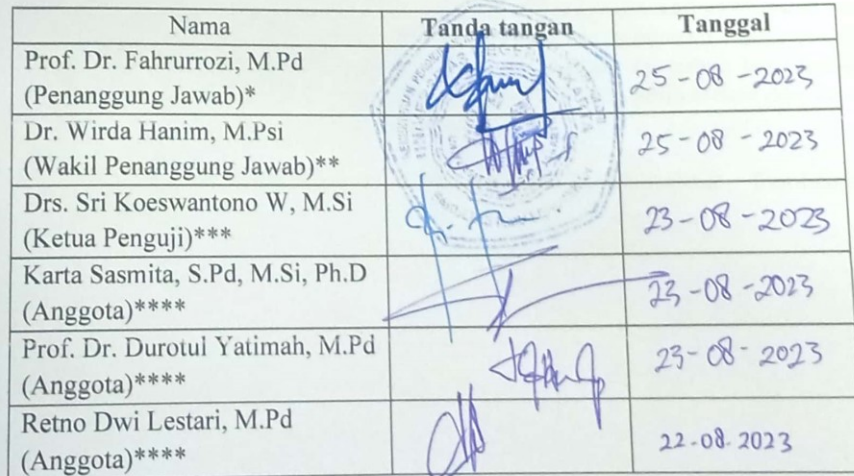 Nama Tanda tangan Tanggal
Prof. Dr. Fahrurrozi, M.Pd
(Penanggung Jawab)* 25-08-2023
Dr. Wirda Hanim, M.Psi
(Wakil Penanggung Jawab)** 25-08-2023
Drs. Sri Koeswantono W, M.Si
(Ketua Penguji)*** 23-08-2023
Karta Sasmita, S.Pd, M.Si, Ph.D
(Anggota)**** 23-08-2023
Prof. Dr. Durotul Yatimah, M.Pd
(Anggota)**** 23-08-2023
Retno Dwi Lestari, M.Pd
(Anggota)**** 22-08.2023